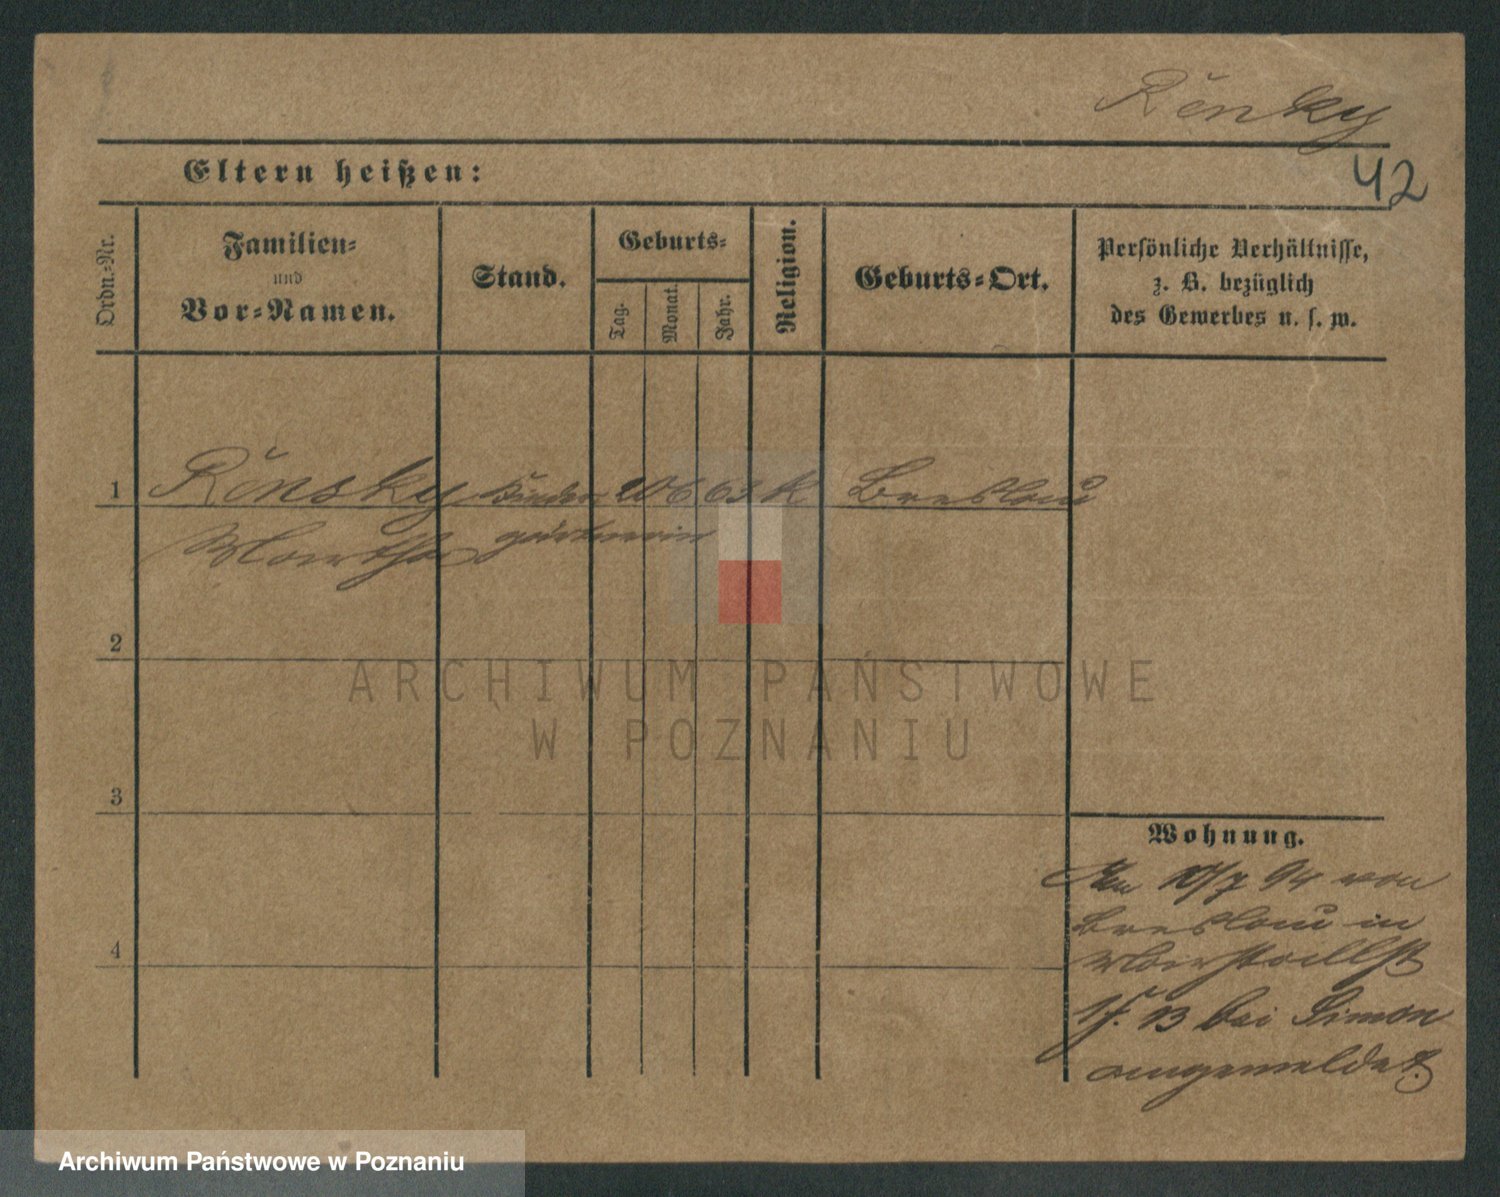 Rensky
42
Eltern heißen:
Ordn.-Nr.
Familien-
und
Vor-Namen.
Stand.
Geburts-
Tag.
Monat.
Jahr.
Religion.
Geburts-Ort.
Persönliche Verhältnisse,
z. B. bezüglich
des Gewerbes u. s. w.
1 Rensky Kinder 20 6 63 K Breslau
Martha gärtnerin
2
3
4
Wohnung.
Am 94 von
Breslau in
13 bei Simon
angemeldet.
ARCHIWUM PAŃSTWOWE
W POZNANIU
Archiwum Państwowe w Poznaniu